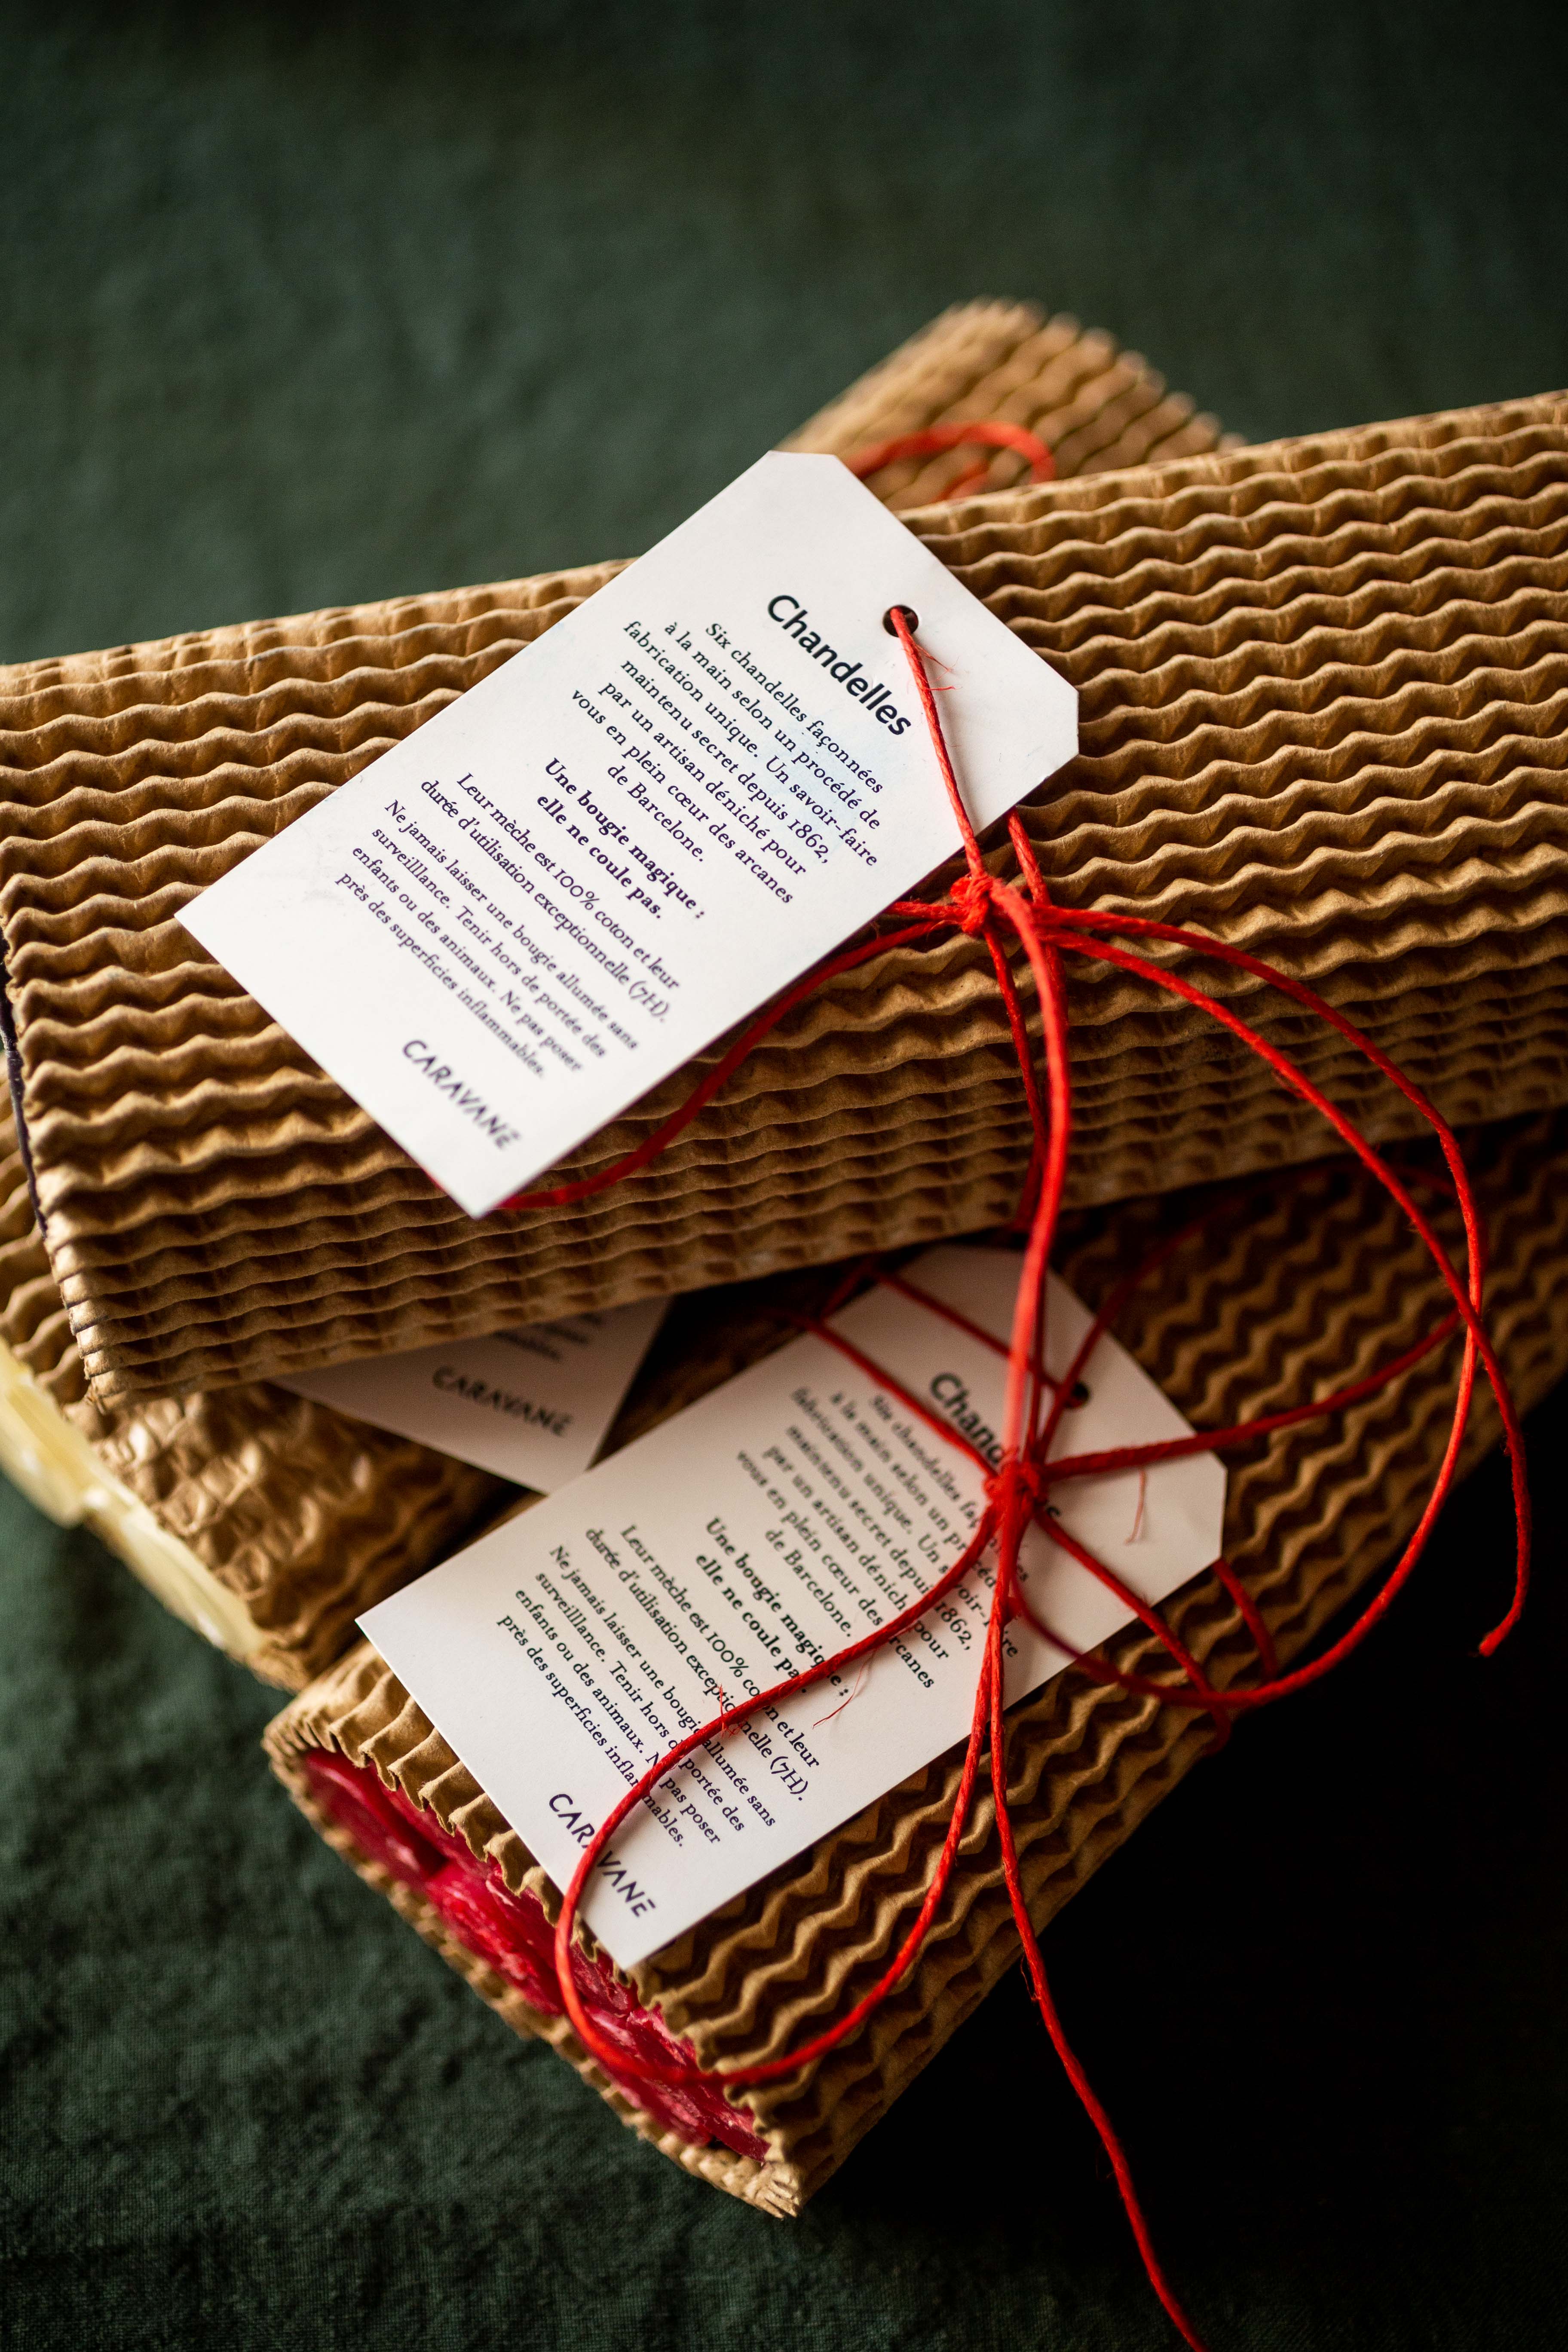 Chandelles
Six chandelles façonnées
à la main selon un procédé de
fabrication unique. Un savoir-faire
maintenu secret depuis 1862,
par un artisan déniché pour
vous en plein cœur des arcanes
de Barcelone.
Une bougie magique :
elle ne coule pas.
Leur mèche est 100% coton et leur
durée d'utilisation exceptionnelle (7H).
Ne jamais laisser une bougie allumée sans
surveillance. Tenir hors de portée des
enfants ou des animaux. Ne pas poser
près des superficies inflammables.
CARAVANE
CARAVANE
Chandelles
Six chandelles façonnées
à la main selon un procédé de
fabrication unique. Un savoir-faire
maintenu secret depuis 1862,
par un artisan déniché pour
vous en plein cœur des arcanes
de Barcelone.
Une bougie magique :
elle ne coule pas.
Leur mèche est 100% coton et leur
durée d'utilisation exceptionnelle (7H).
Ne jamais laisser une bougie allumée sans
surveillance. Tenir hors de portée des
enfants ou des animaux. Ne pas poser
près des superficies inflammables.
CARAVANE